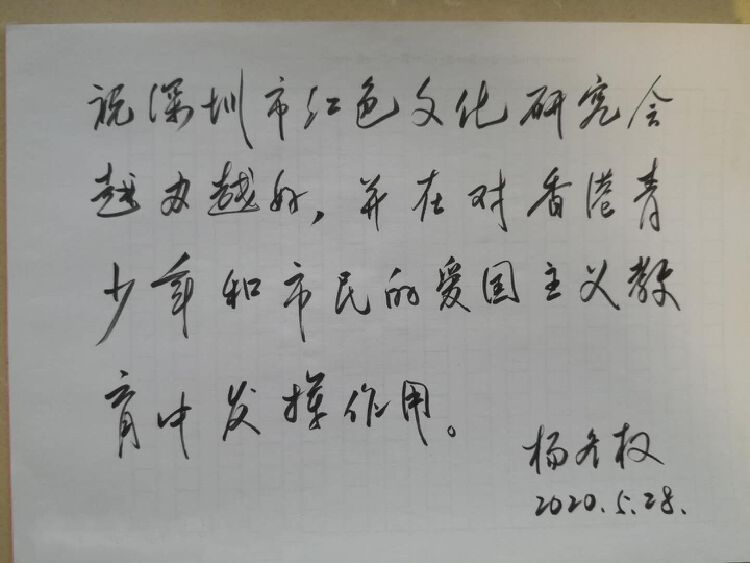 祝深圳市红色文化研究会
越办越好，并在对香港青
少年和市民的爱国主义教
育中发挥作用。
杨冬权
2020.5.28.